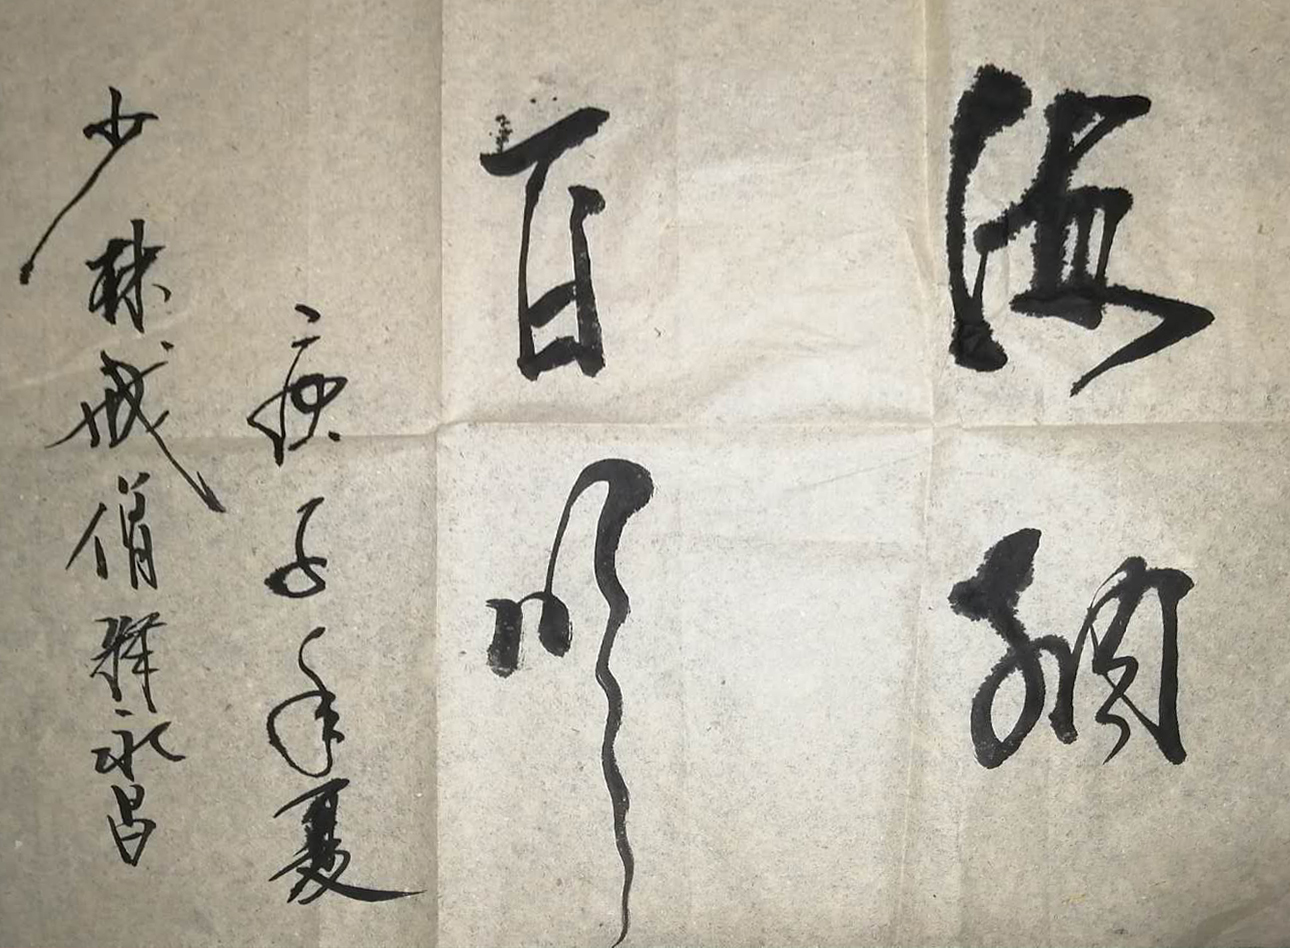 海纳
百川
庚子年夏
少林戒僧释永昌